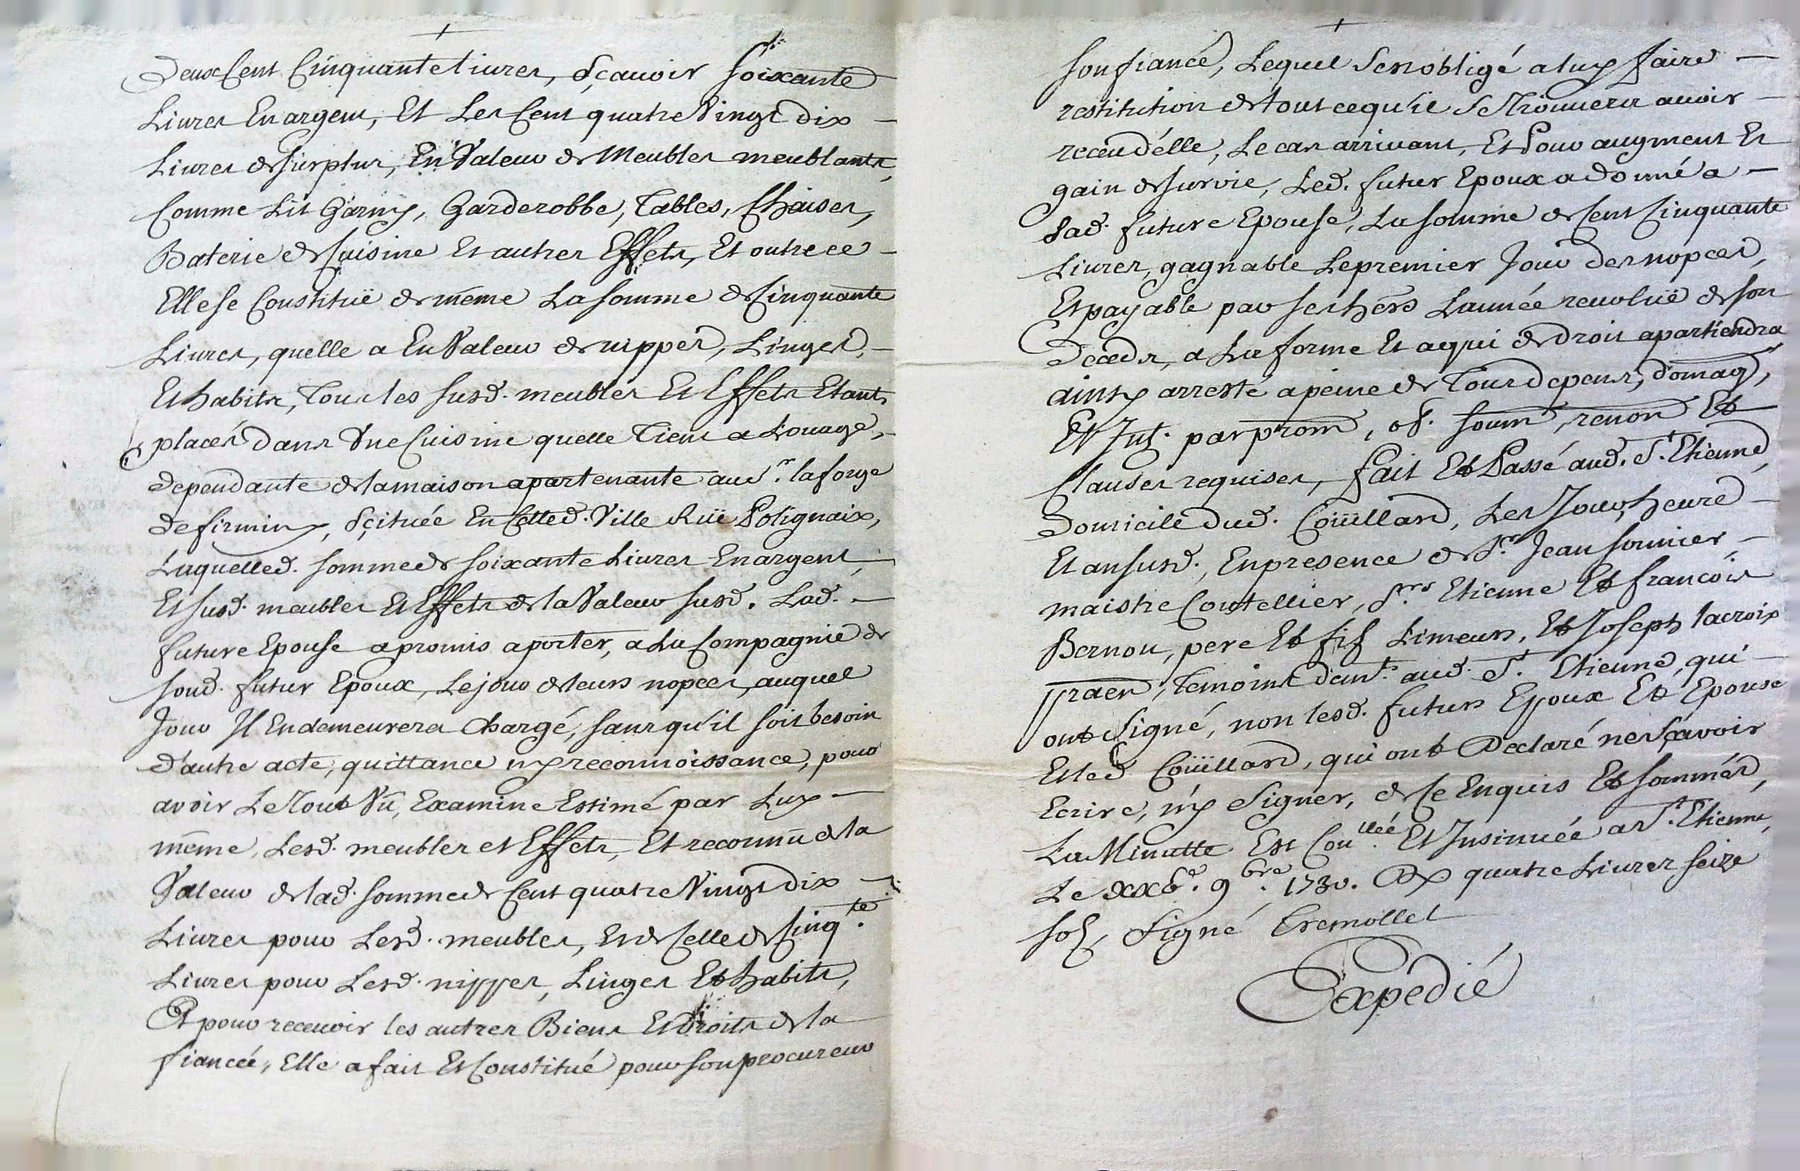 Deux Cent Cinquante livres, sçavoir soixante
Livres En argent, Et Les Cent quatre Vingt dix
Livres de surplus, En Valeur de Meubles meublants,
Comme Lit Garny, Garderobbe, Tables, Chaises,
Baterie de Cuisine Et autres Effets, Et outre ce
Elle se Constituë de même La somme de Cinquante
Livres, quelle a En Valeur de nippes, Linges,
Et habits, Tous les susd. meubles Et Effets Etants
placés Dans Une Cuisine quelle Tient a Louage,
dependante de la maison apartenante au sr. laforge
de firminy, Sçituée En Cetted. Ville Ruë Polignaix,
Laquelled. somme de soixante Livres En argent,
Et susd. meubles Et Effets de la Valeur susd. Lad.
future Epouse a promis aporter, a La Compagnie de
sond. futur Epoux, Le jour de leurs nopces, auquel
Jour Il En demeurera Chargé, sans qu'il soit besoin
d'autre acte, quittance ny reconnoissance, pour
avoir Le Tout Vû, Examiné Estimé par Luy
même, Lesd. meubles et Effets, Et reconnu de la
Valeur de lad. somme de Cent quatre Vingt dix
Livres pour Lesd. meubles, Et de Celle de Cinqte.
Livres pour Lesd. nippes, Linges Et habits,
Et pour recevoir les autres Biens Et droits de la
fiancée, Elle a fait Et Constitué pour son procureur
son fiancé, Lequel s'est obligé a luy faire
restitution de tout ce qu'il se Trouvera avoir
receu d'elle, Le cas arrivant, Et Pour augment Et
gain de survie, Led. futur Epoux a donné a
Lad. future Epouse, La somme de Cent Cinquante
Livres, gagnable Le premier Jour des nopces,
Et payable par ses hers L'année revoluë de son
Deceds, a La forme Et a qui de droit apartiendra
ainsy arresté a peine de Tous depens, domag,
Et Int. par prom, ob. soum, renon Et
Clauses requises, fait Et Passé aud. St. Etienne,
Domicile dud. Coüillard, Les Jour, heure
Et an susd., En presence de Sr. Jean sonnier
maistre Coutellier, Srs. Etienne Et francois
Bernou, pere Et fils Limeurs, Et Joseph lacroix
praen, Temoins demts. aud. St. Etienne, qui
ont signé, non lesd. futurs Epoux Et Epouse
Et led Coüillard, qui ont Declaré ne sçavoir
Ecrire, ny signer, de Ce Enquis Et sommés,
La Minutte Est Conllée. Et Insinuée a St. Etienne,
Le xxbe. 9bre. 1730. quatre Livres seize
sols, Signé Tremollet
Expedié